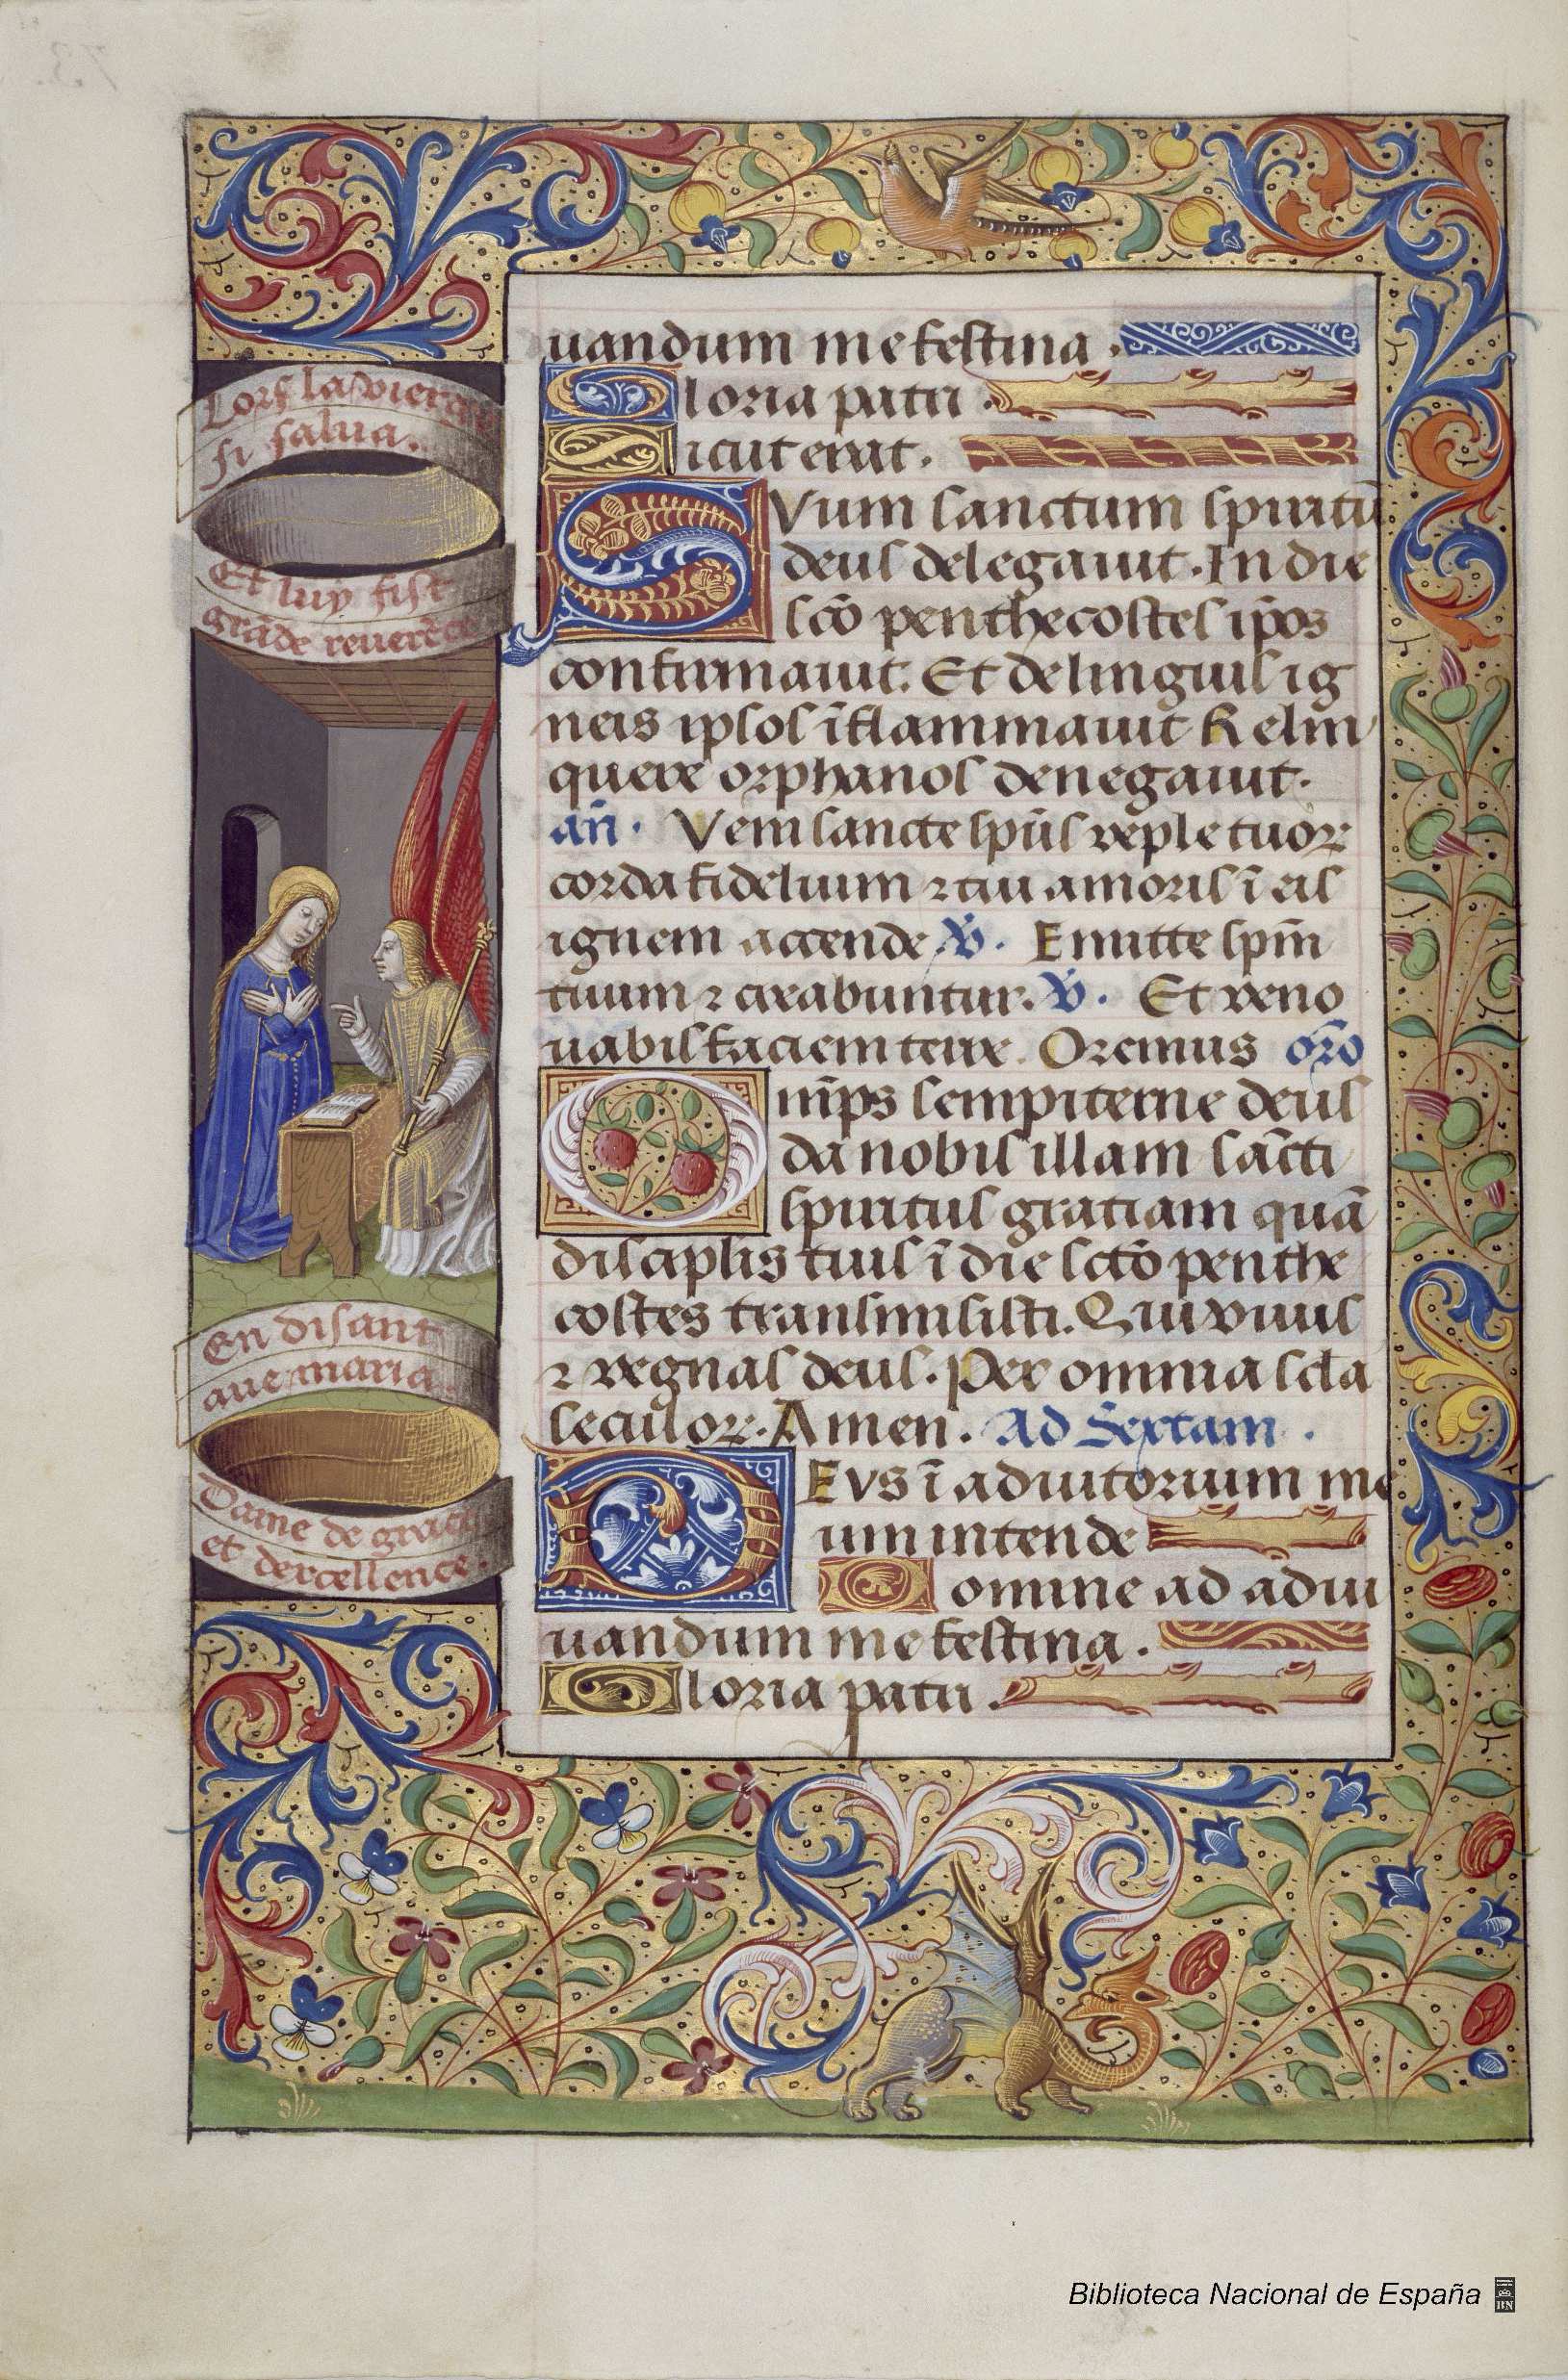 uandum me festina .
Gloria patri .
Sicut erat .
SVum sanctum spiritū
deus delegauit . In die
sctō penthecostes ip̄os
confirmauit . Et de linguis ig
neis ipsos īflammauit Relin
quere orphanos denegauit .
añ . Veni sancte sp̄us reple tuoꝝ
corda fidelium ⁊ tui amoris ī eis
ignem accende . ꝟ . Emitte sp̄m
tuum ⁊ creabuntur . ꝟ . Et reno
uabis faciem terre . Oremus or̄o
Om̄ps sempiterne deus
da nobis illam sācti
spiritus gratiam quā
discip̄lis tuis ī die sctō penthe
costes transmisisti . Qui viuis
⁊ regnas deus . Per omnia scl̄a
seculoꝝ . Amen . Ad Sextam .
DEVS ī adiutorium me
um intende
Domine ad adiu
uandum me festina .
Gloria patri .
Lors la vierge
si salua .
Et luy fist
grāde reuerēce
En disant
aue maria .
Dame de grace
et dexcellence .
Biblioteca Nacional de España
BN